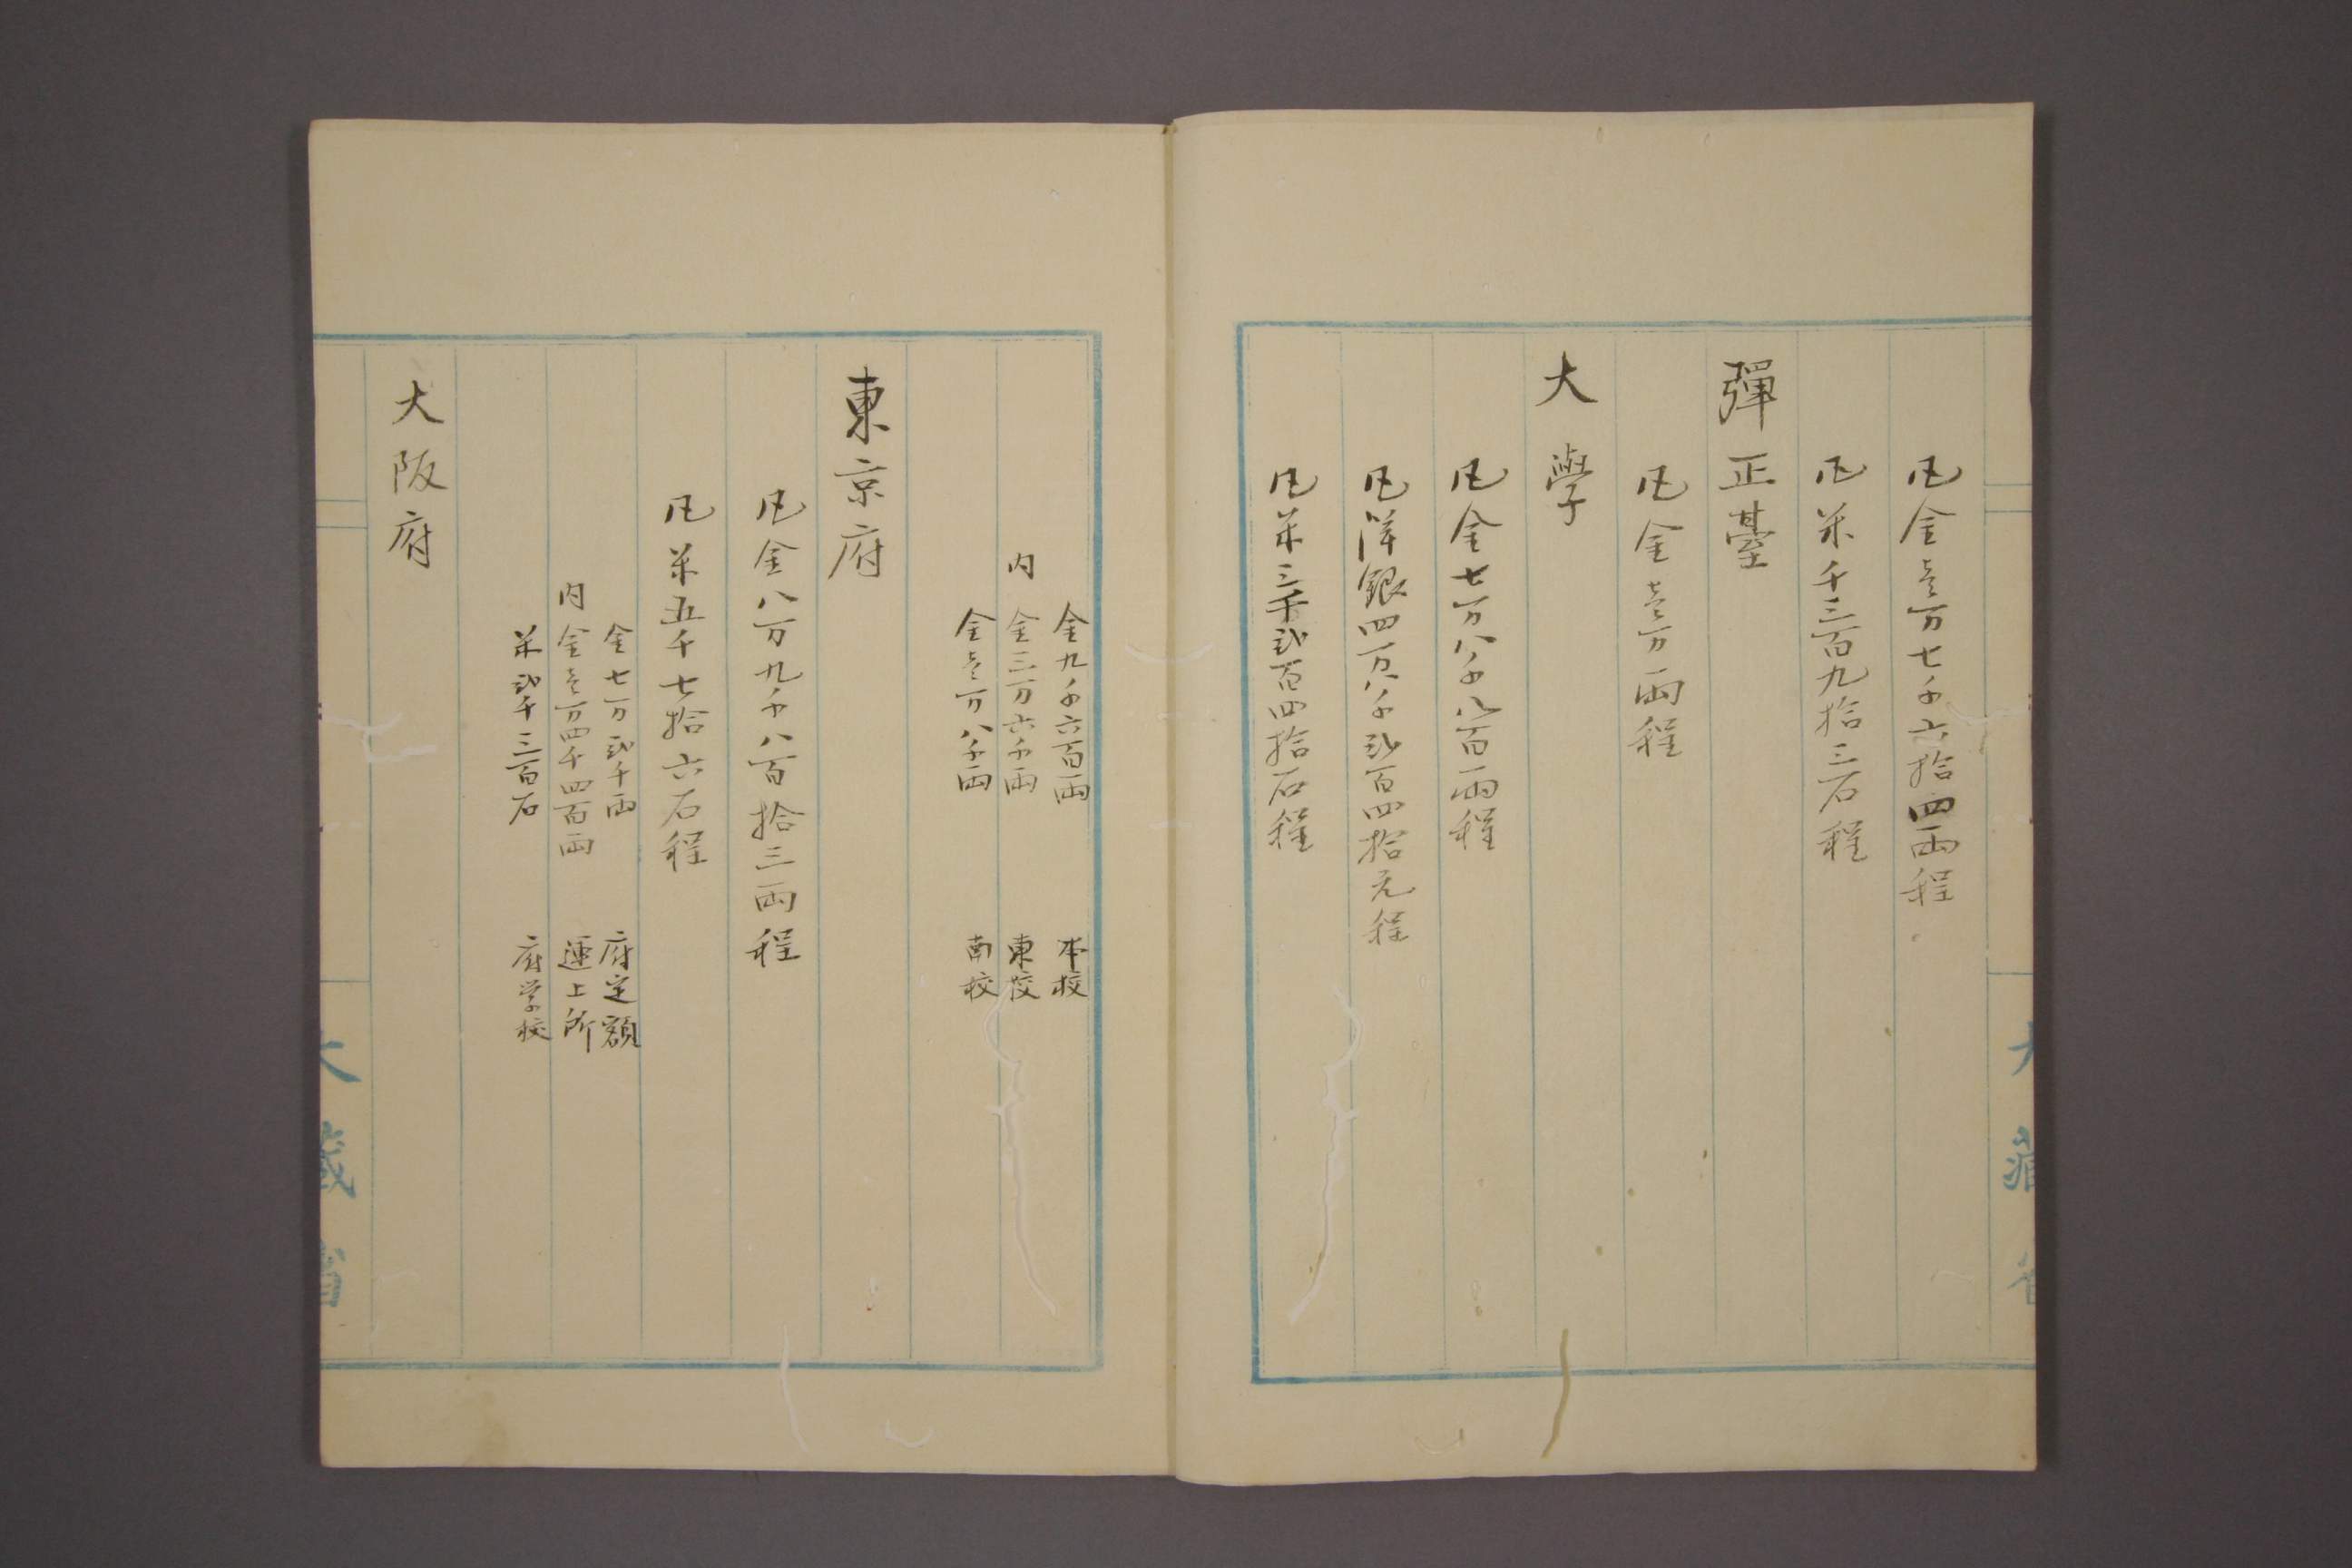 凡金壱万七千六拾四両程
凡米千三百九拾三石程
彈正臺
凡金壱万両程
大學
凡金七万八千八百両程
凡洋銀四万八千弐百四拾元程
凡米三千弐百四拾石程
金九千六百両 本校
内 金三万六千両 東校
金壱万八千両 南校
東京府
凡金八万九千八百拾三両程
凡米五千七拾六石程
金七万弐千両 府定額
内 金壱万四千四百両 運上所
米弐千三百石 府学校
大阪府
大藏省